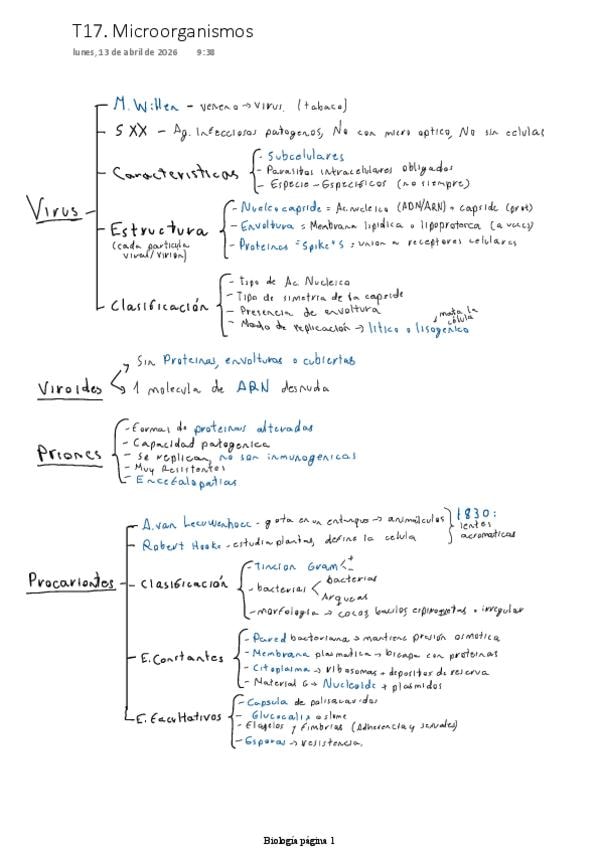 T17. Microorganismos
lunes, 13 de abril de 2026 9:38
Virus
- M. Willen - veneno → virus. (tabaco)
- S XX - Ag. Infecciosos patogenos, No con micro optico, No sin celulas
- Caracteristicas
- Subcelulares
- Parasitos intracelulares obligados
- Especie - Especificos (no siempre)
- Estructura
(cada particula viral/virión)
- Nucleocapside = Ac. nucleico (ADN/ARN) + capside (prot)
- Envoltura = Membrana lipidica o lipoproteica (a veces)
- Proteinas "Spike"S : union a receptores celulares
- Clasificación
- tipo de Ac. Nucleico
- Tipo de simetria de la capside
- Presencia de envoltura
- Modo de replicación → lítico o lisogenico
mata la celula
Viroides
Sin Proteinas, envolturas o cubiertas
1 molecula de ARN desnuda
Priones
- Formas de proteinas alteradas
- Capacidad patogenica
- Se replican, no son inmunogénicas
- Muy Resistentes
- Encefalopatias
Procariontes
- A. van Leeuwenhoec - gota en un estanque → animálculos
- Robert Hooke - estudia plantas, define la celula
1830:
lentes
acromaticas
- Clasificación
- Tincion Gram + -
- bacterias
bacterias
Arqueas
- morfologia → cocos bacilos espiroquetas + irregular
- E. Constantes
- Pared bacteriana → mantiene presión osmotica
- Membrana plasmatica → bicapa con proteinas
- Citoplasma → ribosomas + depositos de reserva
- Material G → Nucleoide + plásmidos
- E. Facultativos
- Capsula de polisacaridos
- Glucocalix o slime
- Flagelos y Fimbrias (Adherencia y sexuales)
- Esporas → resistencia.
Biología página 1